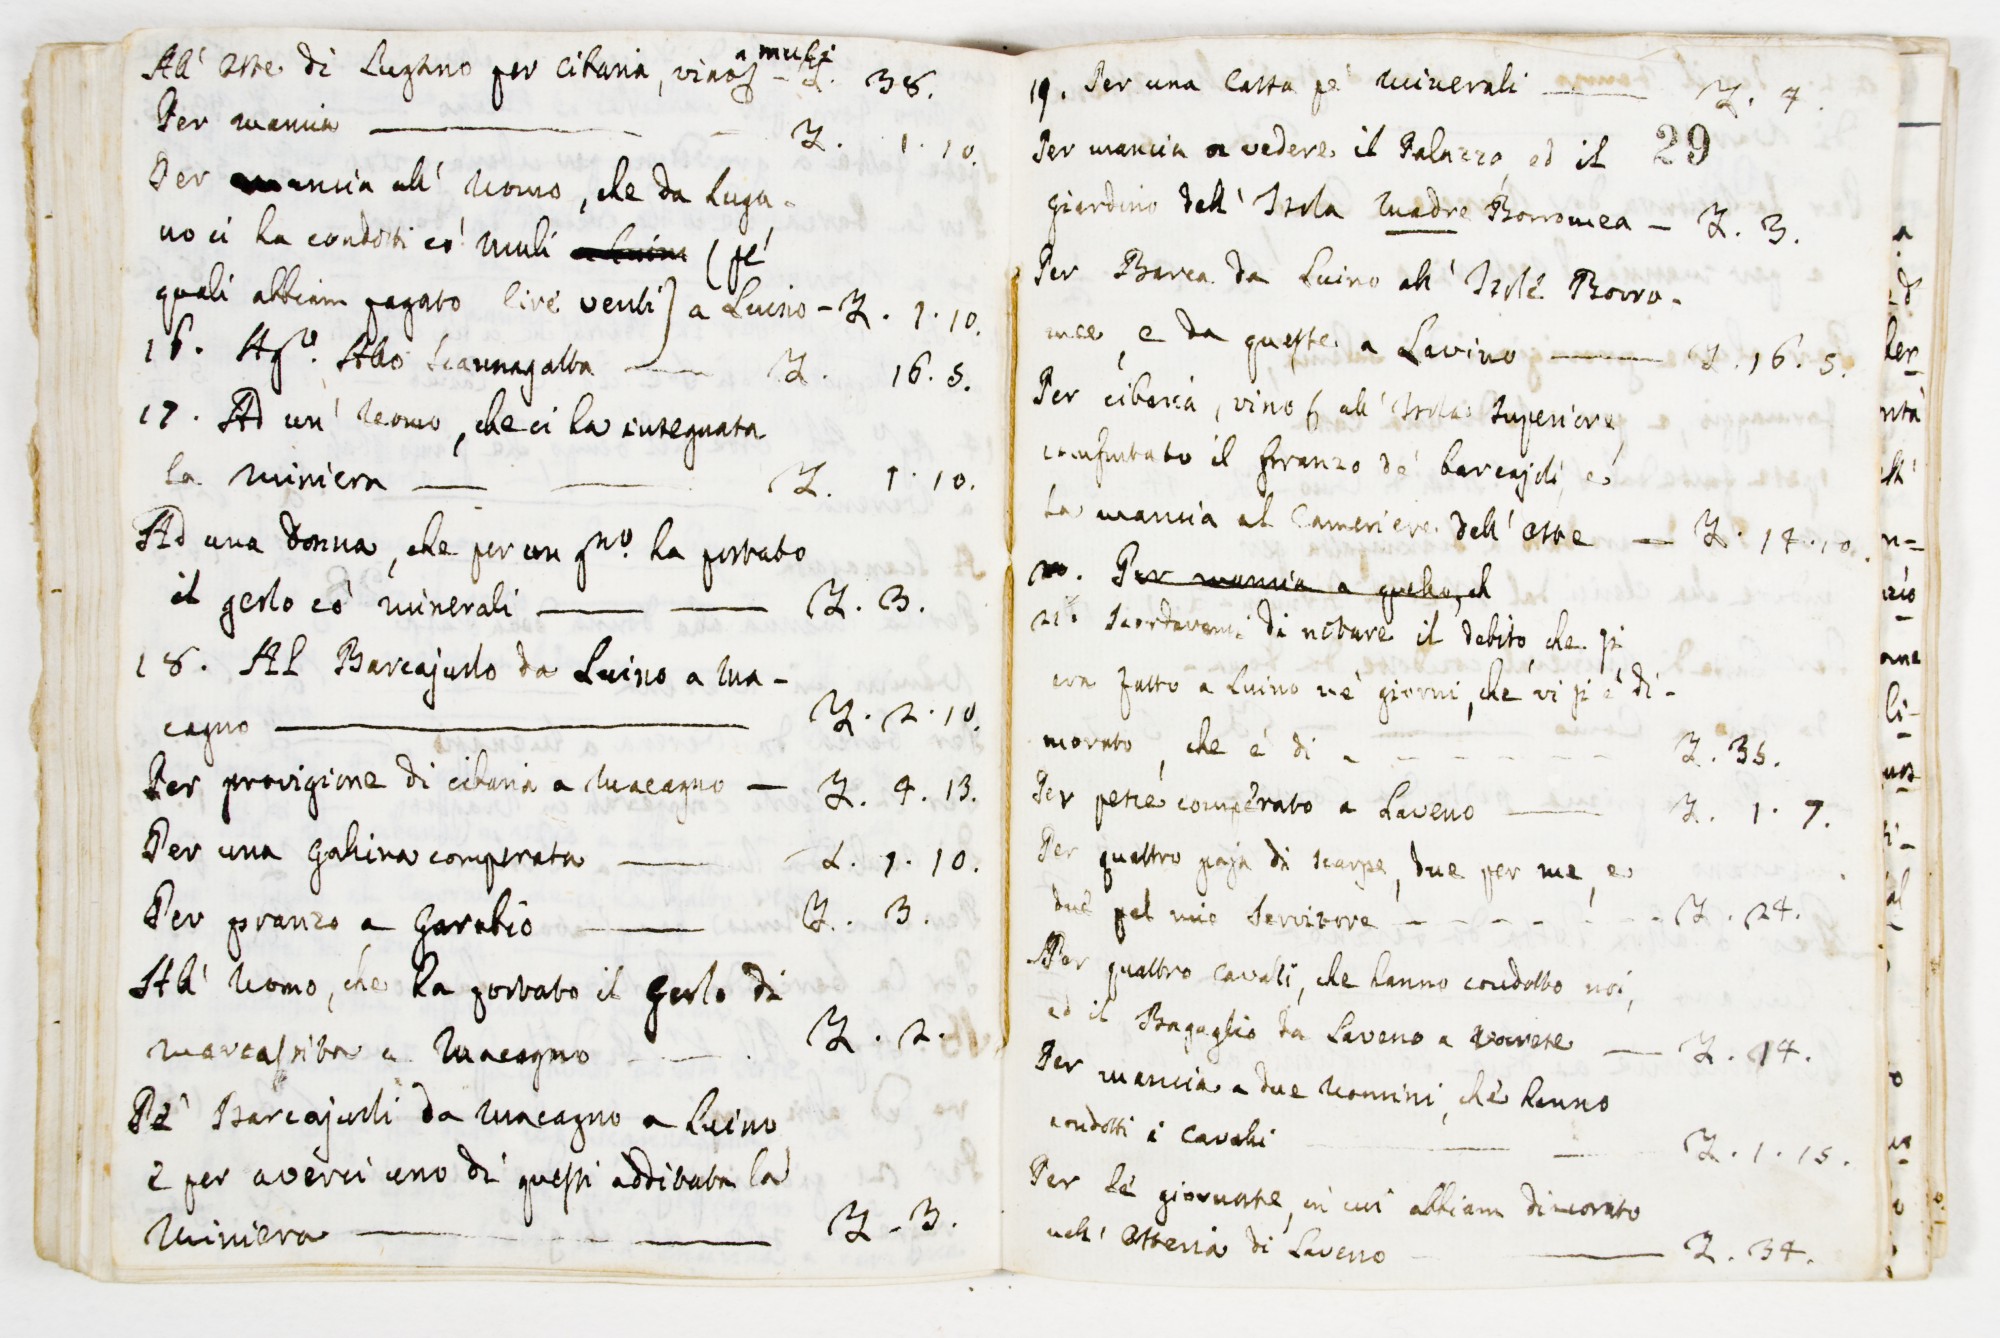 All' Oste di Lugano per cibaria, vino, e muli - L. 38.
Per mancia — L. 1. 10.
Per mancia all' Uomo, che da Luga-
no ci ha condotti co' muli a Luino (pe'
quali abbiam pagato lire venti) a Luino - L. 1. 10.
16. Ag.º Allo Scannagatta — L. 16. 5.
17. Ad un' Uomo, che ci ha insegnata
la miniera — L. 1. 10.
Ad una donna, che per un gno. ha portato
il gerlo co' minerali — L. 3.
18. Al Barcajuolo da Luino a Ma-
cagno — L. 2. 10.
Per provigione di cibaria a Macagno — L. 4. 13.
Per una gallina comperata — L. 1. 10.
Per pranzo a Garabio — L. 3.
All' Uomo, che ha portato il Gerlo di
marcassita a Macagno — L. 2.
Pe' Barcajuoli da Macagno a Luino,
e per averci uno di questi additata la
Miniera — L. 3.
19. Per una Cassa pe' minerali — L. 4.
29
Per mancia a vedere il Palazzo, ed il
giardino dell' Isola Madre Borromea - L. 3.
Per Barca da Luino all' Isole Borro-
mee, e da queste a Lavino — L. 16. 5.
Per cibaria, vino all' Isola Superiore,
computato il pranzo de' barcajoli, e
la mancia al Cameriere dell' Oste — L. 14. 10.
20. Per mancia a quello, ch
21. Scordavami di notare il debito, che si
era fatto a Luino ne' giorni, che vi si è di-
morato, che è di - - - L. 35.
Per pesce comperato a Laveno — L. 1. 7.
Per quattro paja di scarpe, due per me, e
due pel mio Servitore - - - L. 24.
Per quattro cavalli, che hanno condotto noi,
ed il Bagaglio da Laveno a Varese — L. 14.
Per mancia a due Uomini, che hanno
condotti i cavalli — L. 1. 15.
Per le giornate, in cui abbiam dimorato
nell' Osteria di Laveno — L. 34.